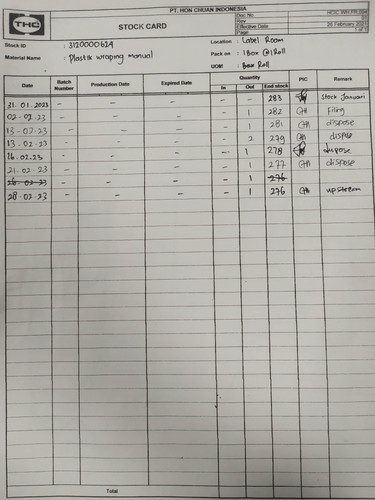 PT. HON CHUAN INDONESIA
THC
STOCK CARD
Doc No. HCIC.WH.FR.004
Rev
Effective Date 26 February 2021
Page 1 of 1
Stock ID : 3120000624
Location : Label Room
Material Name : Plastik wraping manual
Pack on : 1 Box @ 1 Roll
UOM : Box Roll
Date Batch Number Production Date Expired Date Quantity PIC Remark
In Out End stock
31.01.2023 - - - - - 283 Stock Januari
02-02.23 - - - - 1 282 GA Filing
13-02-23 - - - - 1 281 GA dispose
13-02.23 - - - - 2 279 GA dispose
16.02.23 - - - - 1 278 dispose
21.02.23 - - - - 1 277 GA dispose
28.02.23 - - - - 1 276 GA upstream
Total